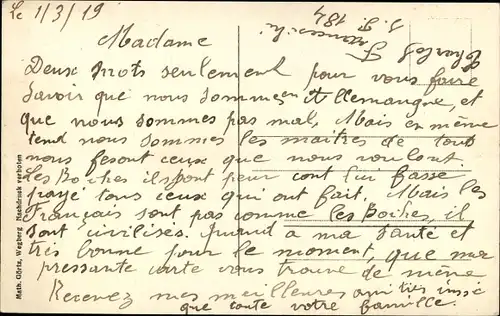 Le 1/3/19
Madame
Deux mots seulement pour vous faire
savoir que nous sommes en Allemangne, et
que nous sommes pas mal, Mais en même
tend nous sommes les maitres de tout
nous fesont ceux que nous voulont.
les Boches ils ont peur cont lui fasse
payé tous ceux qui ont fait. Mais les
Français sont pas comme les Boches, il
sont civilisés. quand a ma santé et
très bonne pour le moment, que ma
pressante carte vous trouve de même
Recevez mes meilleures amitiés insi
que toute votre famille.
Charles
S. P. 184
Math. Görtz, Wegberg Nachdruck verboten